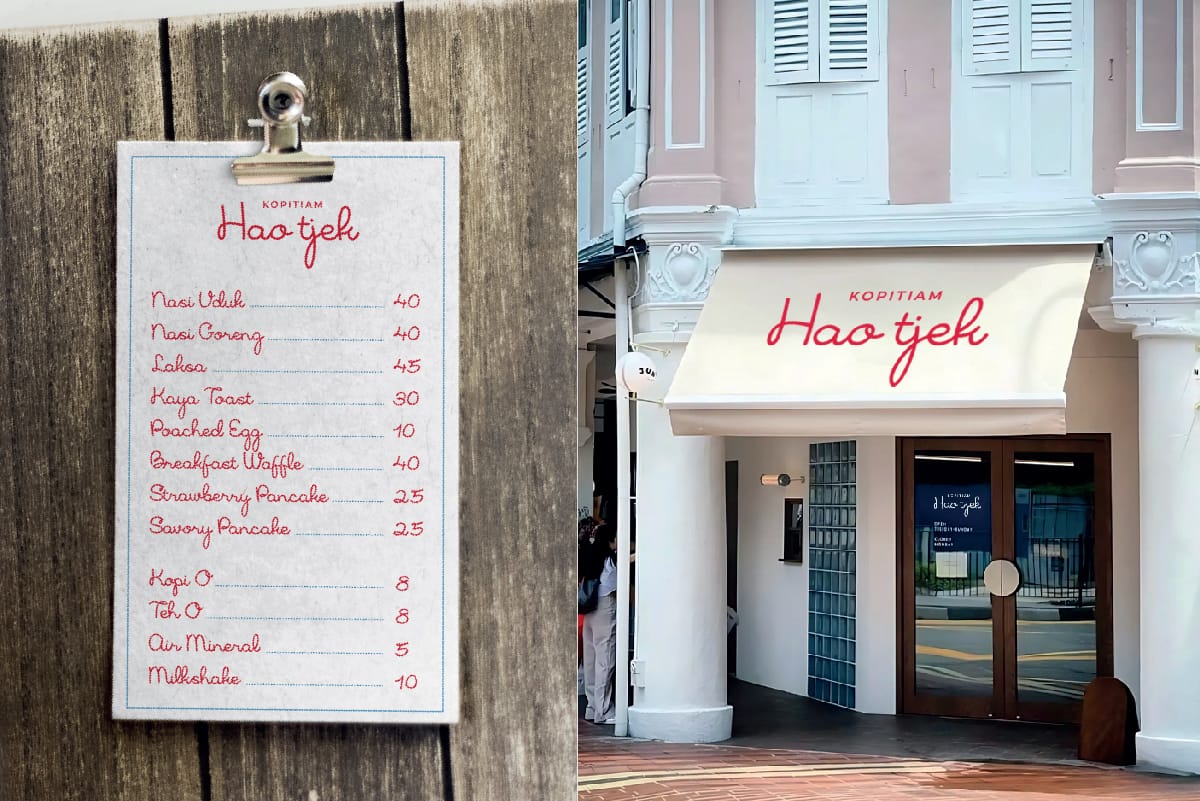 KOPITIAM
Hao tjek
Nasi Uduk 40
Nasi Goreng 40
Laksa 45
Kaya Toast 30
Poached Egg 10
Breakfast Waffle 40
Strawberry Pancake 25
Savory Pancake 25
Kopi O 8
Teh O 8
Air Mineral 5
Milkshake 10
KOPITIAM
Hao tjek
KOPITIAM
Hao tjek
OPEN